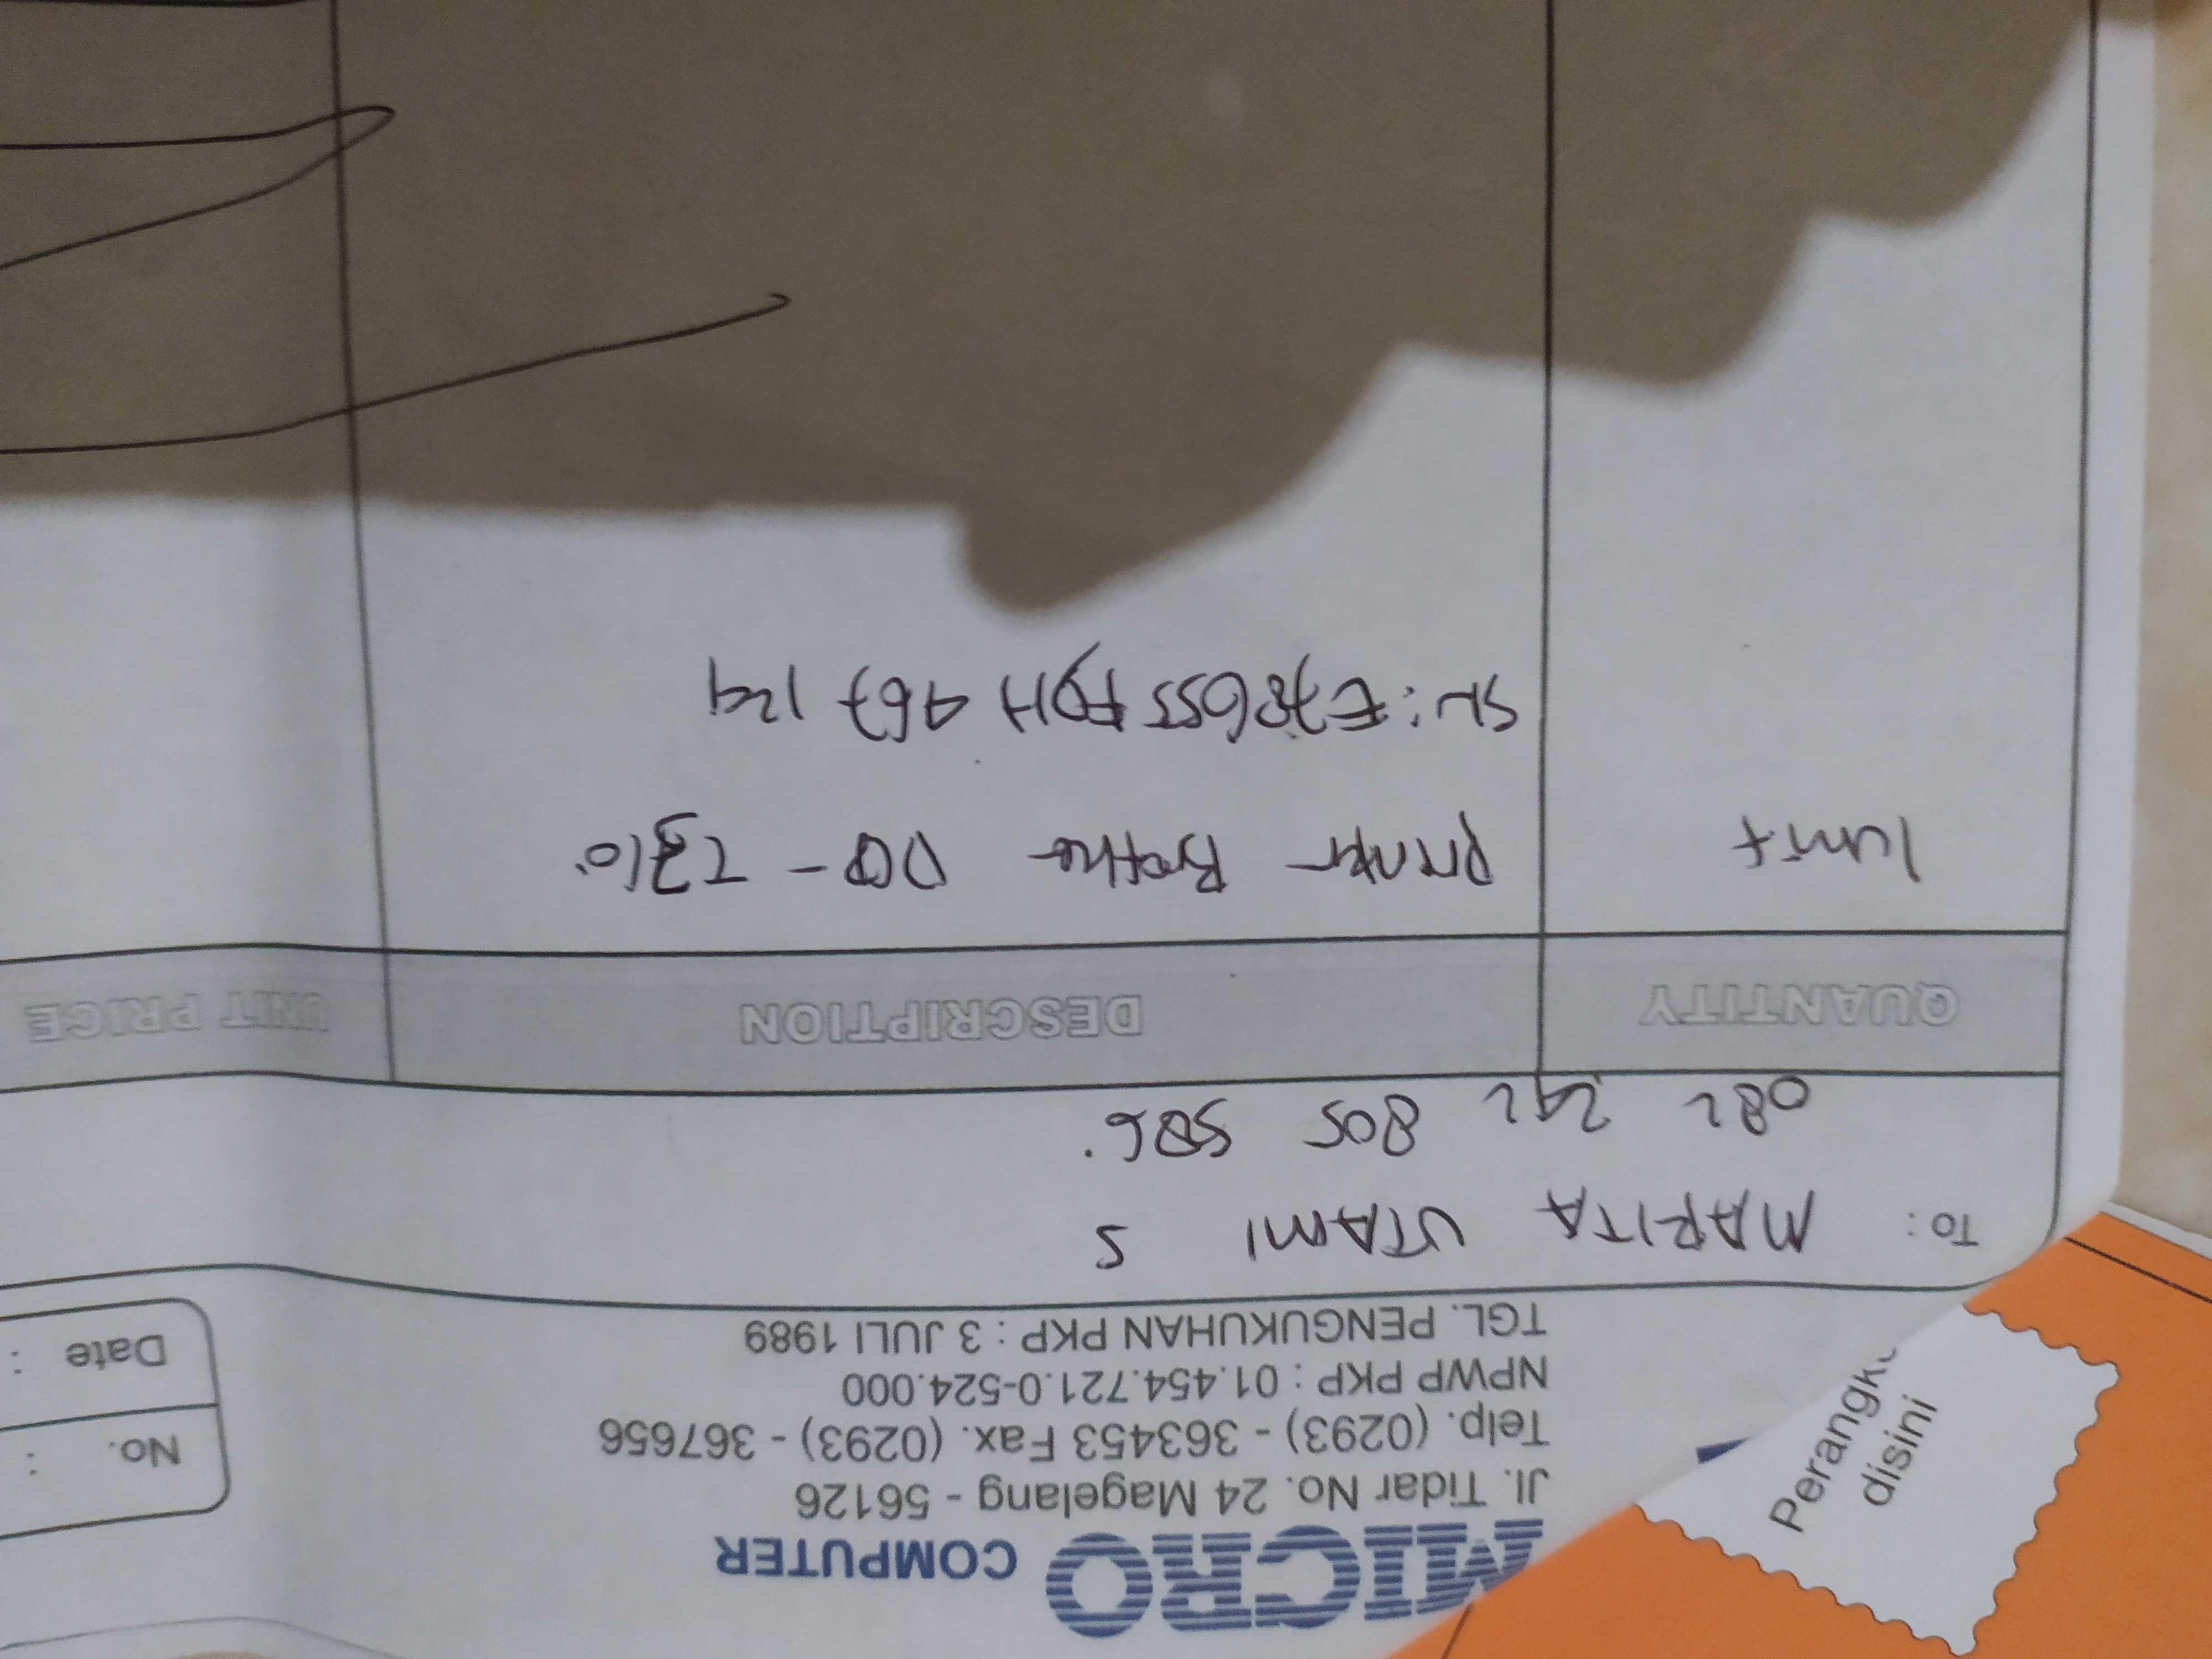 MICRO COMPUTER
Jl. Tidar No. 24 Magelang - 56126
Telp. (0293) - 363453 Fax. (0293) - 367656
NPWP PKP : 01.454.721.0-524.000
TGL. PENGUKUHAN PKP : 3 JULI 1989
No. :
Date :
TO : MARITA UTAMI S
082 242 805 586.
QUANTITY DESCRIPTION UNIT PRICE
1 unit Printer Brother DCP - T310.
SN: E78655F0H467124
disini